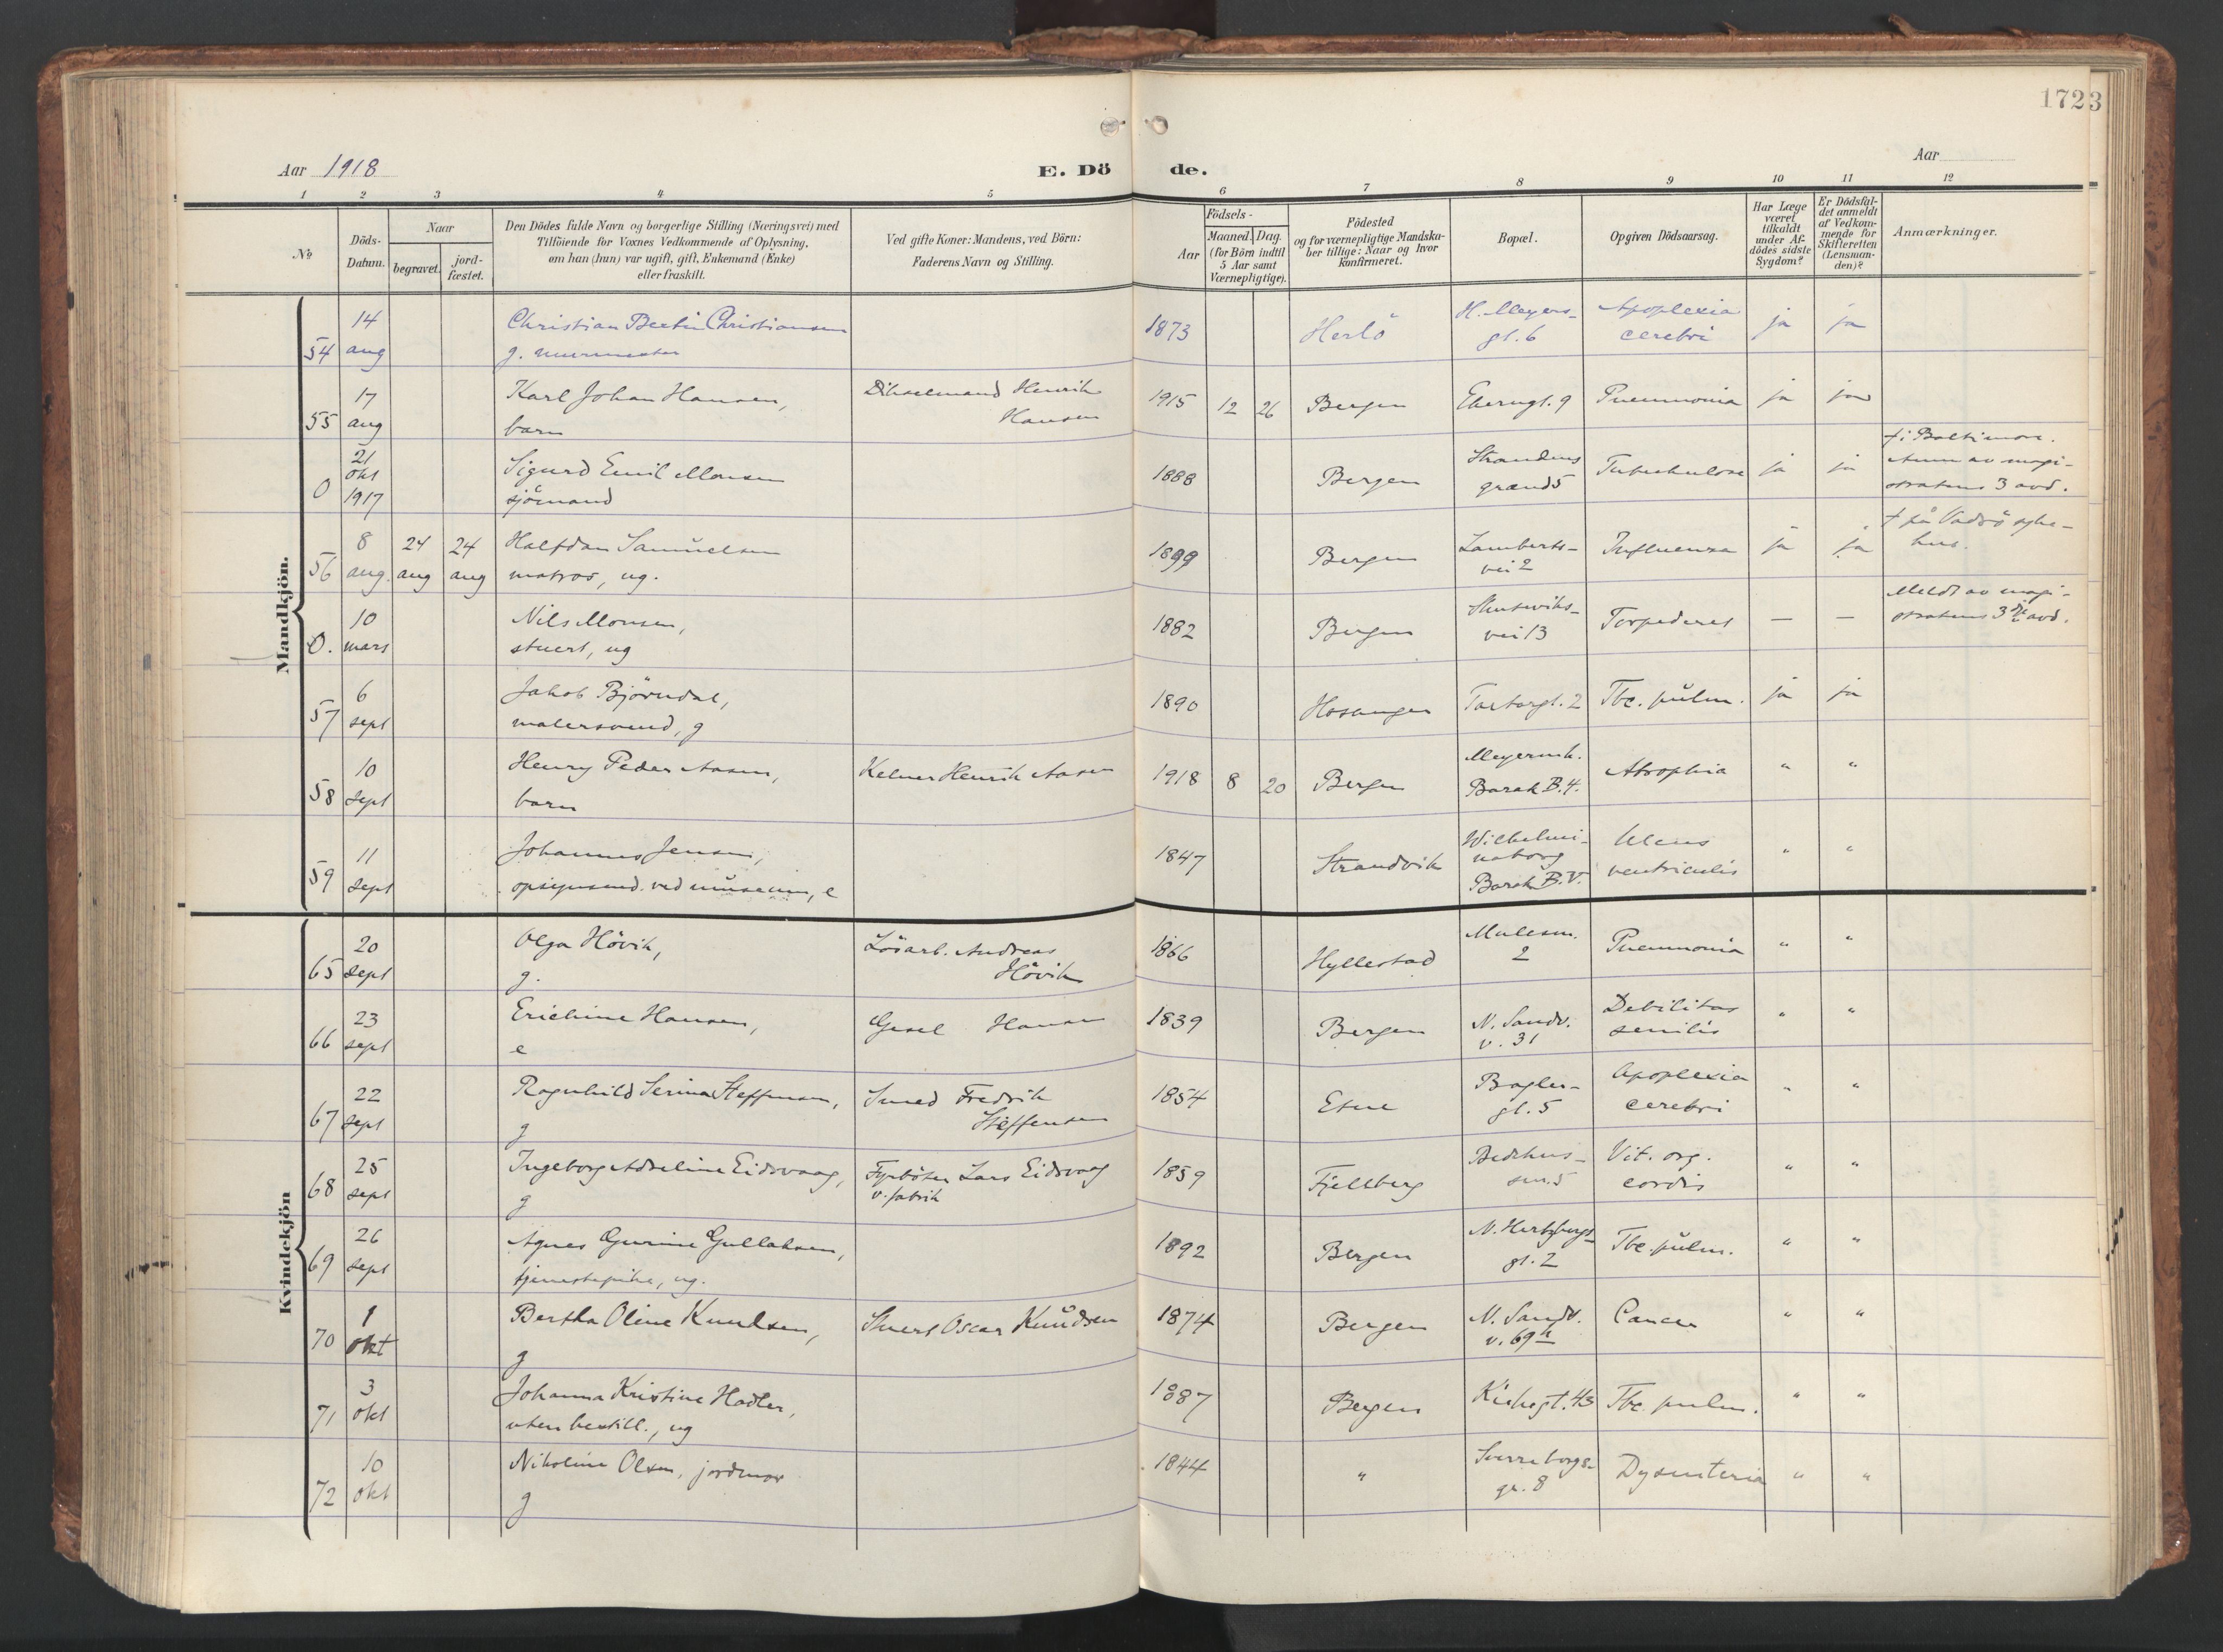 1723
Aar 1918
E. Dö de.
Aar
1 2 3 4 5 6 7 8 9 10 11 12
No
Döds-Datum.
Naar
begravet.
jord-fæstet.
Den Dödes fulde Navn og borgerlige Stilling (Næringsvei) med
Tilföiende for Voxnes Vedkommende af Oplysning,
om han (hun) var ugift, gift, Enkemand (Enke)
eller fraskilt.
Ved gifte Koner: Mandens, ved Börn:
Faderens Navn og Stilling.
Födsels-
Aar
Maaned. Dag.
(for Börn indtil
5 Aar samt
Værnepligtige).
Födested
og for værnepligtige Mandska-
ber tillige: Naar og hvor
konfirmeret.
Bopæl.
Opgiven Dödsaarsag.
Har Læge
været
tilkaldt
under Af-
dödes sidste
Sygdom?
Er Dödsfal-
det anmeldt
af Vedkom-
mende for
Skifteretten
(Lensman-
den)?
Anmærkninger.
Mandkjön.
54 14 aug Christian Bertin Christiansen
g. murmester
1873 Herlö H. Meyers-
gt. 6
Apoplexia
cerebri
ja ja
55 17 aug Karl Johan Hansen,
barn
Henrik
Hansen
1915 12 26 Bergen 9 Pneumonia ja ja
0 21 okt 1917 Sigurd Emil Monsen
sjömand
1888 Bergen Strandens
grænd 5
Tuberkulose ja ja
† i Baltimore.
av magi-
stratens 3 avd.
56 8 aug. 24 aug 24 aug Halfdan Samuelsen
matros, ug.
1899 Bergen Lamberts-
vei 2
Influenza ja ja
† på Vadsö syke-
hus.
0. 10 mars Nils Monsen,
stuert, ug
1882 Bergen Skuteviks-
vei 13
Torpederet — —
Meldt av magi-
stratens 3dje avd.
57 6 sept Jakob Björndal,
malersvend, g
1890 Hosanger 2 Tbc. pulm. ja ja
58 10 sept Henry Peder Aasen,
barn
Kelner Henrik Aasen
1918 8 20 Bergen
Barak B. 4.
Atrophia " "
59 11 sept Johannes Jensen,
opsynsmd. ved museum, e
1847 Strandvik Wilhelmi-
naborg
Barak B. V.
Ulcus
ventriculis
" "
Kvindekjön
65 20 sept Olga Hövik,
g.
Lösarb. Andreas
Hövik
1866 Hyllestad Mulesm.
2
Pneumonia " "
66 23 sept Erichine Hansen,
e
Gesel Hansen
1839 Bergen N. Sandv.
v. 31
Debilitas
senilis
" "
67 22 sept Ragnhild Serina Steffensen,
g
Smed Fredrik
Steffensen
1854 Etne Bagler-
gt. 5
Apoplexia
cerebri
" "
68 25 sept Ingeborg Adseline Eidsvaag,
g
Fyrböter Lars Eidsvaag
v. fabrik
1859 Fjellberg Bedehus-
sm. 5
Vit. org.
cordis
" "
69 26 sept Agnes Gurine Gullaksen,
tjenestepike, ug.
1892 Bergen N. Hertzbergs
gt. 2
Tbc. pulm. " "
70 1 okt Bertha Oline Knudsen,
g
Stuert Oscar Knudsen
1874 Bergen N. Sandv.
v. 69a
Cancer " "
71 3 okt Johanna Kristine Hadler,
uten bestill., ug
1887 Bergen Kirkegt. 43 Tbc. pulm. " "
72 10 okt Nikoline Olsen, jordmor
g
1844 " Sverreborgs-
gt. 8
Dysenteria " "